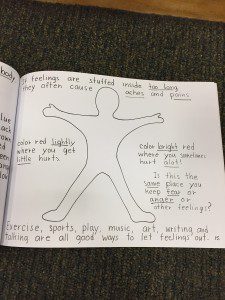 If feelings are stuffed inside too long
they often cause aches and pains.
color red lightly
where you get
little hurts.
color bright red
where you sometimes
hurt alot!
Is this the
same place you
keep fear or
anger or
other feelings?
Exercise, sports, play, music, art, writing and
talking are all good ways to let feelings out.